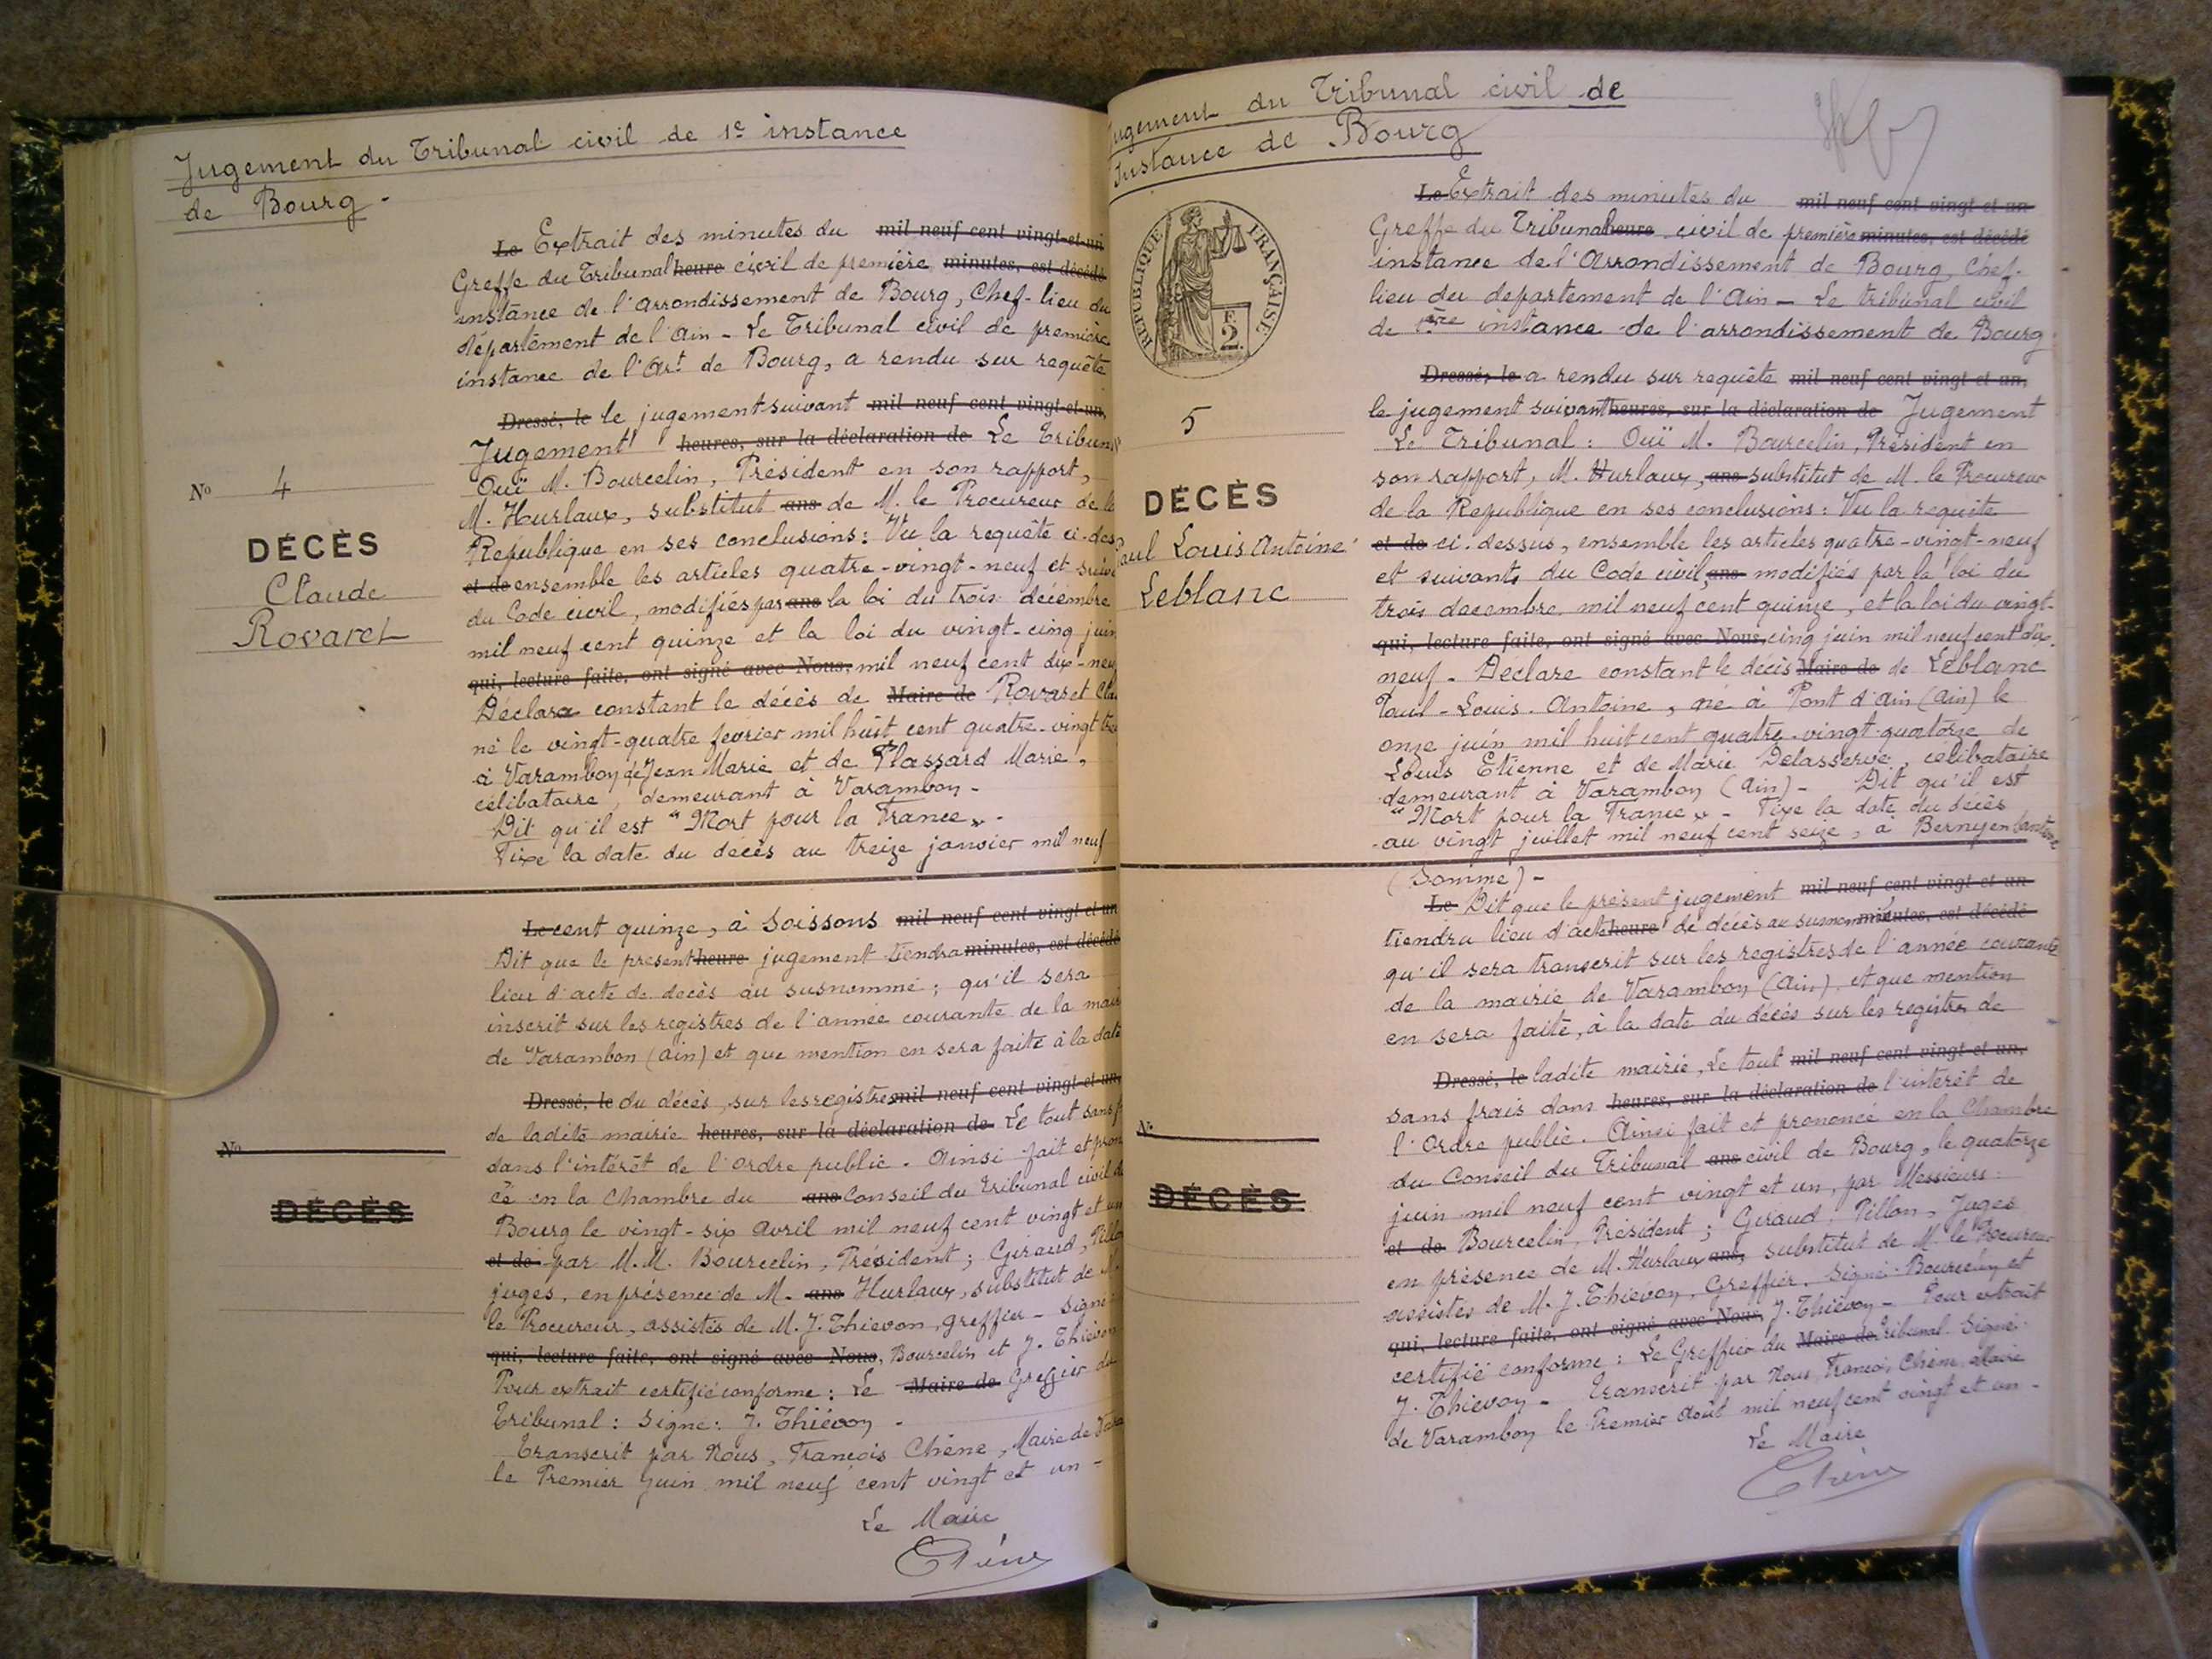 Jugement du Tribunal civil de 1e instance
de Bourg -
Le Extrait des minutes du mil neuf cent vingt-et-un
Greffe du Tribunal heure civil de première minutes, est décédé
instance de l'arrondissement de Bourg, Chef-lieu du
département de l'Ain - Le Tribunal civil de première
instance de l'Art de Bourg, a rendu sur requête
Dressé, le le jugement suivant mil neuf cent vingt-et-un,
Jugement heures, sur la déclaration de Le Tribun
Ouï M. Bourcelin, Président en son rapport,
M. Hurlaux, substitut ans de M. le Procureur de la
République en ses conclusions: Vu la requête ci-des
et de ensemble les articles quatre-vingt-neuf et suiv
du Code civil, modifiés par ans la loi du trois décembre
mil neuf cent quinze et la loi du vingt-cinq juin
qui, lecture faite, ont signé avec Nous, mil neuf cent dix-neuf
Déclare constant le décès de Maire de Rovaret Cla
né le vingt-quatre février mil huit cent quatre-vingt tre
à Varambon de Jean Marie et de Plassard Marie,
célibataire, demeurant à Varambon -
Dit qu'il est "Mort pour la France" -
Fixe la date du décès au treize janvier mil neuf
No 4
DÉCÈS
Claude
Rovaret
Le cent quinze, à Soissons mil neuf cent vingt et un
Dit que le présent heure jugement tiendra minutes, est décédé
lieu d'acte de décès au susnommé; qu'il sera
inscrit sur les registres de l'année courante de la mair
de Varambon (Ain) et que mention en sera faite à la date
Dressé, le du décès, sur les registres mil neuf cent vingt-et-un,
de ladite mairie heures, sur la déclaration de Le tout sans f
dans l'intérêt de l'ordre public. Ainsi fait et pronon
cé en la Chambre du ans Conseil du Tribunal civil d
Bourg le vingt-six Avril mil neuf cent vingt et un
et de par M.M. Bourcelin, Président; Giraud, Pillo
juges, en présence de M. ans Hurlaux, substitut de M.
le Procureur, assistés de M. J. Thievon, greffier - Signé
qui, lecture faite, ont signé avec Nous, Bourcelin et J. Thievon
Pour extrait certifié conforme: Le Maire de Greffier du
Tribunal: Signé: J. Thiévon -
Transcrit par Nous, François Chêne, Maire de Vara
le Premier Juin mil neuf cent vingt et un -
Le Maire
Chêne
No
DÉCÈS
Jugement du Tribunal civil de
Instance de Bourg
RÉPUBLIQUE FRANÇAISE
F.
2.
Le Extrait des minutes du mil neuf cent vingt et un
Greffe du Tribunal heure civil de première minutes, est décédé
instance de l'Arrondissement de Bourg, Chef-
lieu du département de l'Ain - Le tribunal civil
de 1ère instance de l'arrondissement de Bourg
Dressé, le a rendu sur requête mil neuf cent vingt et un,
le jugement suivant heures, sur la déclaration de Jugement
Le Tribunal: Ouï M. Bourcelin, Président en
son rapport, M. Hurlaux, ans substitut de M. le Procureur
de la République en ses conclusions: Vu la requête
et de ci-dessus, ensemble les articles quatre-vingt-neuf
et suivants du Code civil, ans modifiés par la loi du
trois décembre mil neuf cent quinze, et la loi du vingt-
qui, lecture faite, ont signé avec Nous, cinq juin mil neuf cent dix-
neuf - Déclare constant le décès Maire de de Leblanc
Paul-Louis-Antoine, né à Pont d'Ain (Ain) le
onze juin mil huit cent quatre-vingt-quatorze de
Louis Etienne et de Marie Delasserve, célibataire
demeurant à Varambon (Ain) - Dit qu'il est
"Mort pour la France" - Fixe la date du décès
au vingt juillet mil neuf cent seize, à Berny en Santerre
5
DÉCÈS
Paul Louis Antoine
Leblanc
(Somme) -
Le Dit que le présent jugement mil neuf cent vingt et un
tiendra lieu d'acte heure de décès au susnommé minutes, est décédé
qu'il sera transcrit sur les registres de l'année courante
de la mairie de Varambon (Ain), et que mention
en sera faite, à la date du décès sur les registres de
Dressé, le ladite mairie, Le tout mil neuf cent vingt et un,
sans frais dans heures, sur la déclaration de l'intérêt de
l'Ordre public. Ainsi fait et prononcé en la Chambre
du Conseil du Tribunal ans civil de Bourg, le quatorze
juin mil neuf cent vingt et un, par Messieurs:
et de Bourcelin, Président; Giraud, Pillon, Juges
en présence de M. Hurlaux ans, substitut de M. le Procureur
assistés de M. J. Thiévon, Greffier. Signé: Bourcelin et
qui, lecture faite, ont signé avec Nous, J. Thiévon - Pour extrait
certifié conforme: Le Greffier du Maire de Tribunal. Signé:
J. Thievon - Transcrit par Nous, François Chêne Maire
de Varambon le Premier Août mil neuf cent vingt et un -
Le Maire
Chêne
No
DÉCÈS